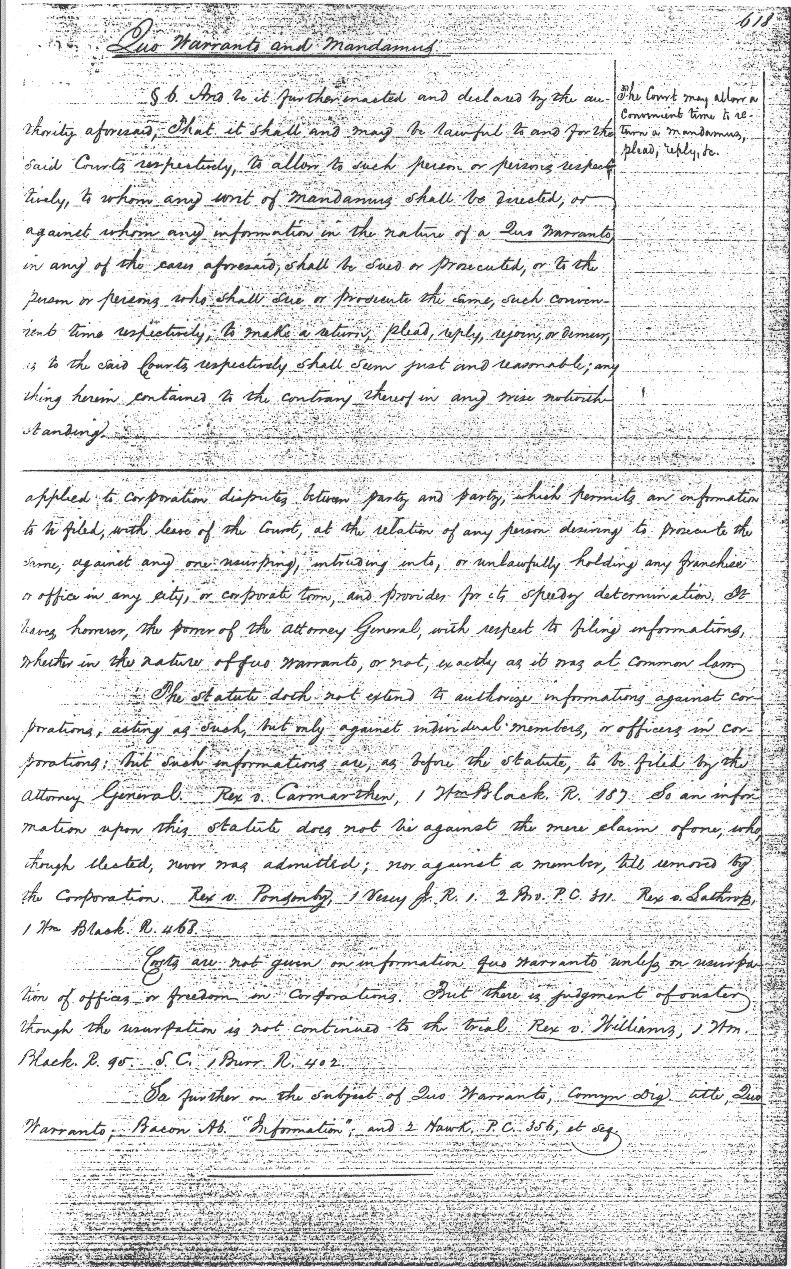 618
Quo Warranto and Mandamus
§ 6. And be it further enacted and declared by the au-
thority aforesaid, That it shall and may be lawful to and for the
said Courts respectively, to allow to such person or persons respec-
tively, to whom any writ of mandamus shall be directed, or
against whom any information in the nature of a Quo Warranto,
in any of the cases aforesaid, shall be sued or prosecuted, or to the
person or persons who shall sue or prosecute the same, such conven-
ient time respectively, to make a return, plead, reply, rejoin, or demur,
as to the said Courts respectively shall seem just and reasonable; any
thing herein contained to the contrary thereof in any wise notwith-
standing.
The Court may allow a
Convenient time to re-
turn a mandamus,
plead, reply, &c.
applied to corporation disputes between party and party, which permits an information
to be filed, with leave of the Court, at the relation of any person desiring to prosecute the
same, against any one usurping, intruding into, or unlawfully holding any franchise
or office in any city, or corporate town, and provides for its speedy determination. It
leaves, however, the power of the Attorney General, with respect to filing informations,
whether in the nature of quo warranto, or not, exactly as it was at common law
The statute doth not extend to authorize informations against cor-
porations, acting as such, but only against individual members, or officers in cor-
porations; but such informations are, as before the statute, to be filed by the
Attorney General. Rex v. Carmarthen, 1 Wm Black. R. 187. So an infor-
mation upon this statute does not lie against the mere claim of one, who,
though elected, never was admitted; nor against a member, till removed by
the Corporation. Rex v. Ponsonby, 1 Vesey Jr. R. 1. 2 Bro. P.C. 311. Rex v. Lathrop,
1 Wm Black. R. 468.
Costs are not given on information quo warranto unless on usurpa-
tion of offices or freedom in corporations. But there is judgment of ouster
though the usurpation is not continued to the trial. Rex v. Williams, 1 Wm.
Black. R. 95. S.C. 1 Burr. R. 402.
See further on the subject of Quo Warranto, Comyn Dig. title, Quo
Warranto; Bacon Ab. "Information"; and 2 Hawk. P.C. 356, et seq.